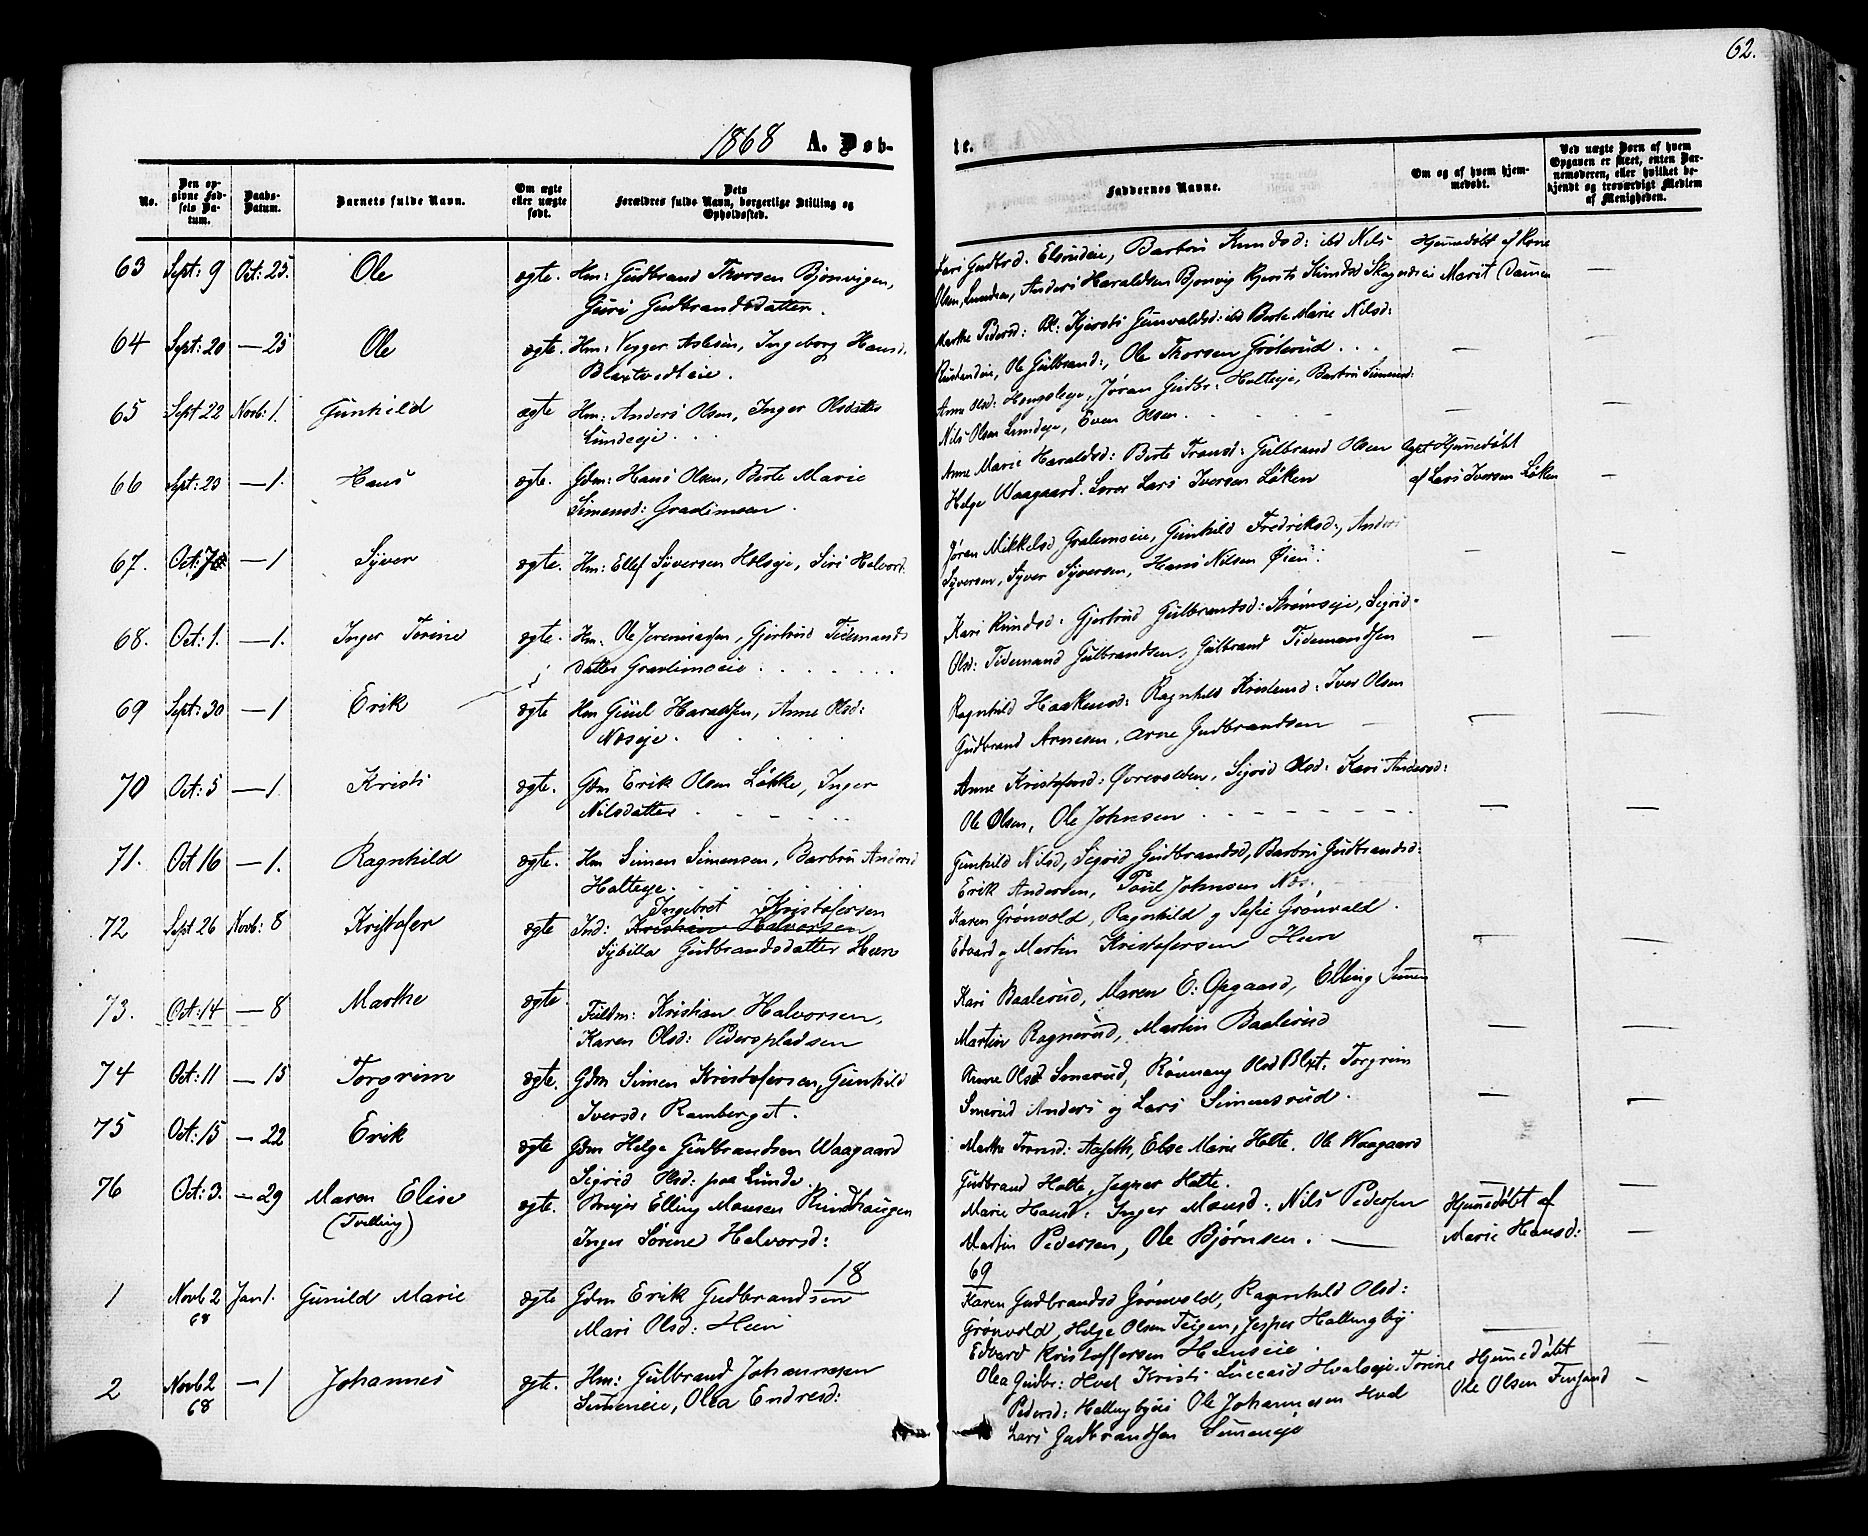 62.
1868 A. Døb-
te.
No.
Den op-
givne Fød-
sels Da-
tum.
Daabs-
Datum.
Barnets fulde Navn.
Om ægte
eller uægte
født.
Dets
Forældres fulde Navn, borgerlige Stilling og
Opholdssted.
Faddernes Navne.
Om og af hvem hjem-
medøbt.
Ved uægte Børn af hvem
Opgaven er skeet, enten Bar-
nemoderen, eller hvilket be-
kjendt og troværdigt Medlem
af Menigheden.
63 Sept: 9 Oct: 25. Ole ægte. Hm: Gudbrand Thorsen Bjonvigen,
Guri Gudbrandsdatter.
Elsrudeie, Barbru Knudsd: ibd Nils Hjemmedøbt af
Olsen, Anders Haraldsen Bjonvig Kjersti Marit —
64 Sept: 20 — 25 Ole ægte. Hm: Aslesen, Ingeborg Hansd.
Marthe Pedersd: Kjersti Gunvaldsd: ibd Berte Marie Nilsd:
Ole Gulbrand:, Ole Thorsen — —
65 Sept 22 Novb: 1. Gunhild ægte Hm: Anders Olsen, Inger Olsdatter
Lundeeje.
Anne Olsd: Jøran Gudbr: Holteeje, Barbru Simensd:
Nils Olsen Lundeje, Even Olsen. — —
66 Sept: 23 — 1. Hans ægte. Gdm: Hans Olsen, Berte Marie
Simensd:
Anne Marie Haraldsd: Berte Gulbrand Olsen Hjemmedøbt
Helge Waagaard. Lærer Lars Iversen Løken af Lars Iversen Løken —
67. Oct: — 1 Syver ægte. Hm: Ellef Syversen Siri Halvord.
Jøran Mikkelsd Gunhild Fredriksd:, Anders
Syversen, Syver Syversen, Hans Nilsen Øien: — —
68. Oct: 1. — 1. Inger Torine ægte. Hm. Ole Jeremiassen, Gjertrud Tidemands
datter
Kari Gjertrud Gulbrandsd: Strømseje, Sigrid
Olsd: Tidemand Gulbrandsen, Gulbrand Tidemandsen — —
69 Sept: 30 — 1 Erik ægte Hm Haraldsen, Anne Olsd:
Næseje.
Ragnhild Haakensd: Ragnhild Kristensd: Iver Olsen
Gudbrand Arnesen, Arne Gudbrandsen — —
70 Oct: 5 — 1. Kristi ægte. Gdm Erik Olsen Løkke, Inger
Nilsdatter
Anne Kristofersd: Sigrid Olsd: Kari Andersd:
Ole Olsen, Ole Johnsen — —
71. Oct 16 — 1. Ragnhild ægte. Hm Simen Simensen, Barbru Andersd
Holteeje.
Gunhild Nilsd, Sigrid Gudbrandsd, Barbru Gudbrandsd:
Erik Andersen, Poul Johnsen Næs.
72 Sept 26 Novb: 8 Kristofer ægte Ind: Ingebret Kristofersen
Kristian Halvorsen
Sybilla Gudbrandsdatter
Karen Grønvold, Ragnhild og Sofie Grønvald.
Edvard og Martin Kristofersen Heen — —
73. Oct: 14 — 8 Marthe ægte. Kristian Halvorsen,
Karen Olsd: Pederspladsen
Kari Baalerud, Maren E: Opgaard, Elling
Martin Ragnerud, Martin Baalerud — —
74 Oct: 11 — 15 Torgrim ægte. Gdm Simen Kristofersen, Gunhild
Iversd: Ramberget.
Anne Olsd Smerud, Rønnaug Olsd Torgrim
Smerud Anders og Lars Simensrud. — —
75 Oct: 15 — 22 Erik ægte Gdm Helge Gudbrandsen Waagaard
Sigrid Olsd: paa Lunde.
Marthe Aaseth, Else Marie Holte. Ole Waagaard
Gudbrand Holte, Holte. — —
76 Oct: 3. — 29 Maren Elise
(Tvilling)
ægte. Elling Monsen
Inger Sørine Halvorsd:
Marie Hansd: Inger Monsd:, Nils Pedersen Hjemmedøbt af
Martin Pedersen, Ole Bjørnsen. — Marie Hansd: —
18
69
1 Novb 2
68
Jan 1. Gunild Marie ægte Gdm Erik Gudbrandsen
Mari Olsd: Heen
Karen Gudbrandsd Grønvold, Ragnhild Olsd:
Grønvold, Helge Olsen Teigen, Jesper Hallingby
Edvard Kristoffersen Henseie. — —
2 Novb 2
68
— 1 Johannes ægte. Hm: Gulbrand Johannesen
Olea Endresd:
Olea Gudbr: Hvel Kristi Hvalseje. Torine Hjemmedøbt
Pedersd: Hallingbyeie Ole Johannesen Hvel Ole Olsen —
Lars Gudbrandsen